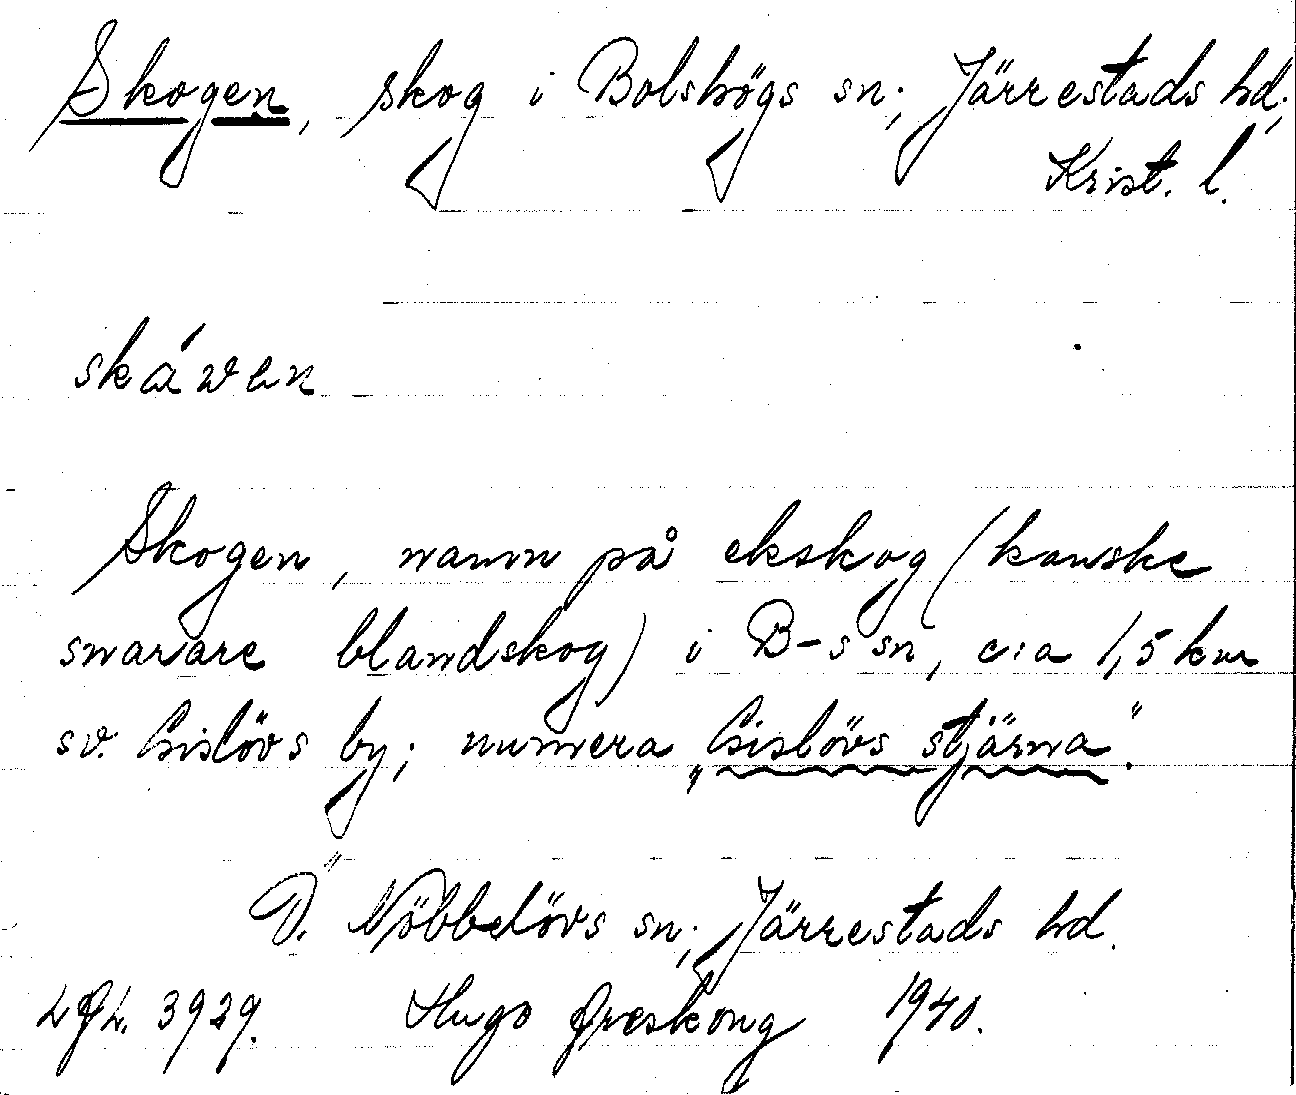 Skogen, skog i Bolshögs sn; Järrestads hd;
Krist. l.
skáwen
Skogen, namn på ekskog (kanske
snarare blandskog) i B-s sn, c:a 1,5 km
sv. Gislövs by; numera „Gislövs stjärna".
Ö. Nöbbelövs sn; Järrestads hd.
3929. Hugo Areskoug 1940.